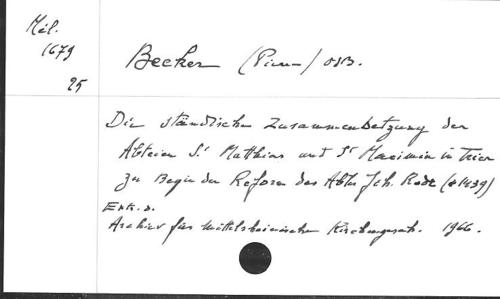 Mél.
1679
25
Becker (Pierre) OSB.
Die ständische Zusammensetzung der
Abteien St Matthias und St Maximin in Trier
zu Begin der Reform des Abtes Joh. Rode (+1439)
Extr. d.
Archiv für mittelrheinischen Kirchengesch. 1966.